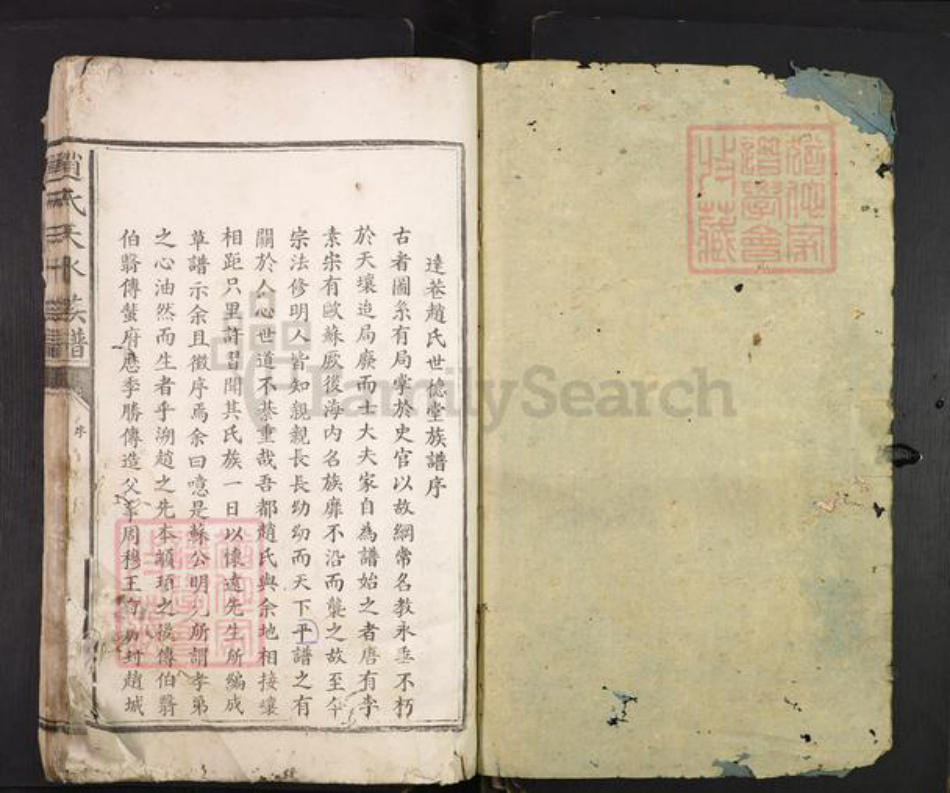 達巷趙氏世德堂族譜序
古者圖系有局掌於史官以故綱常名教永垂不朽
於天壤迨局廢而士大夫家自為譜始之者唐有李
素宋有歐蘇厥後海内名族靡不沿而襲之故至今
宗法修明人皆知親親長長幼幼而天下平譜之有
關於人心世道不綦重哉吾都趙氏與余地相接壤
相距只里許習聞其氏族一日以懷遠先生所編成
草譜示余且徵序焉余曰噫是蘇公明允所謂孝弟
之心油然而生者乎溯趙之先本顓頊之後傳伯翳
伯翳傳蜚府應季勝傳造父幸周穆王有功封趙城
趙氏天水族譜
序
FamilySearch